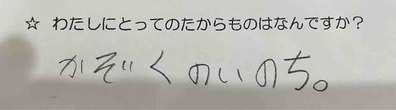 ☆ わたしにとってのたからものはなんですか？
かぞくのいのち。